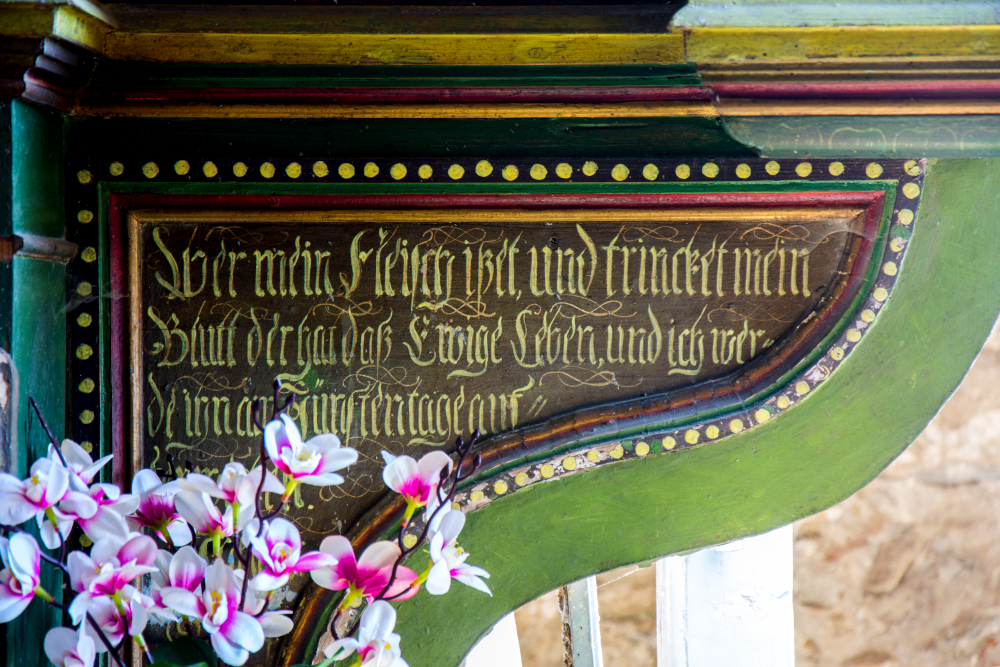 Wer mein Fleisch ißet, und trincket mein
Blutt der hat daß Ewige Leben, und ich wer-
de ihn am Jüngsten tage auf-